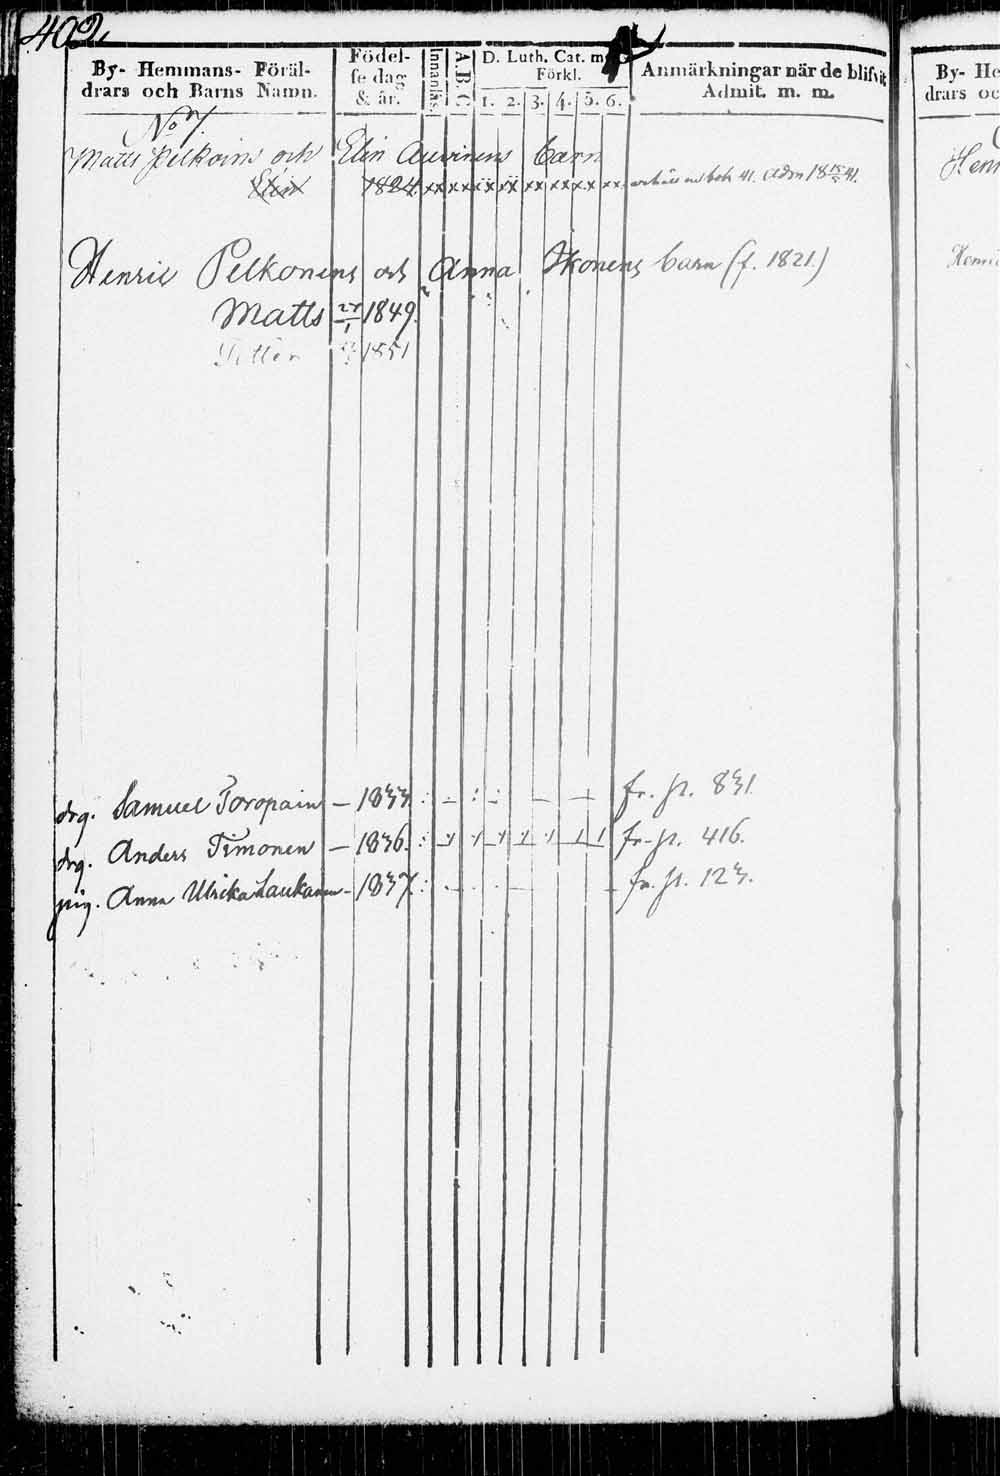 402
By- Hemmans- Föräl-
drars och Barns Namn.
Födel-
se dag
& år.
Innanläs.
A.B.C.
D. Luth. Cat. m
Förkl.
1. 2. 3. 4. 5. 6.
Anmärkningar när de blifvit
Admit. m. m.
No 7.
Matts Pelkoins och Elin Auvinens barn
Elin 1824
Adm 18 41.
Henric Pelkonens och Anna Ikonens barn (f. 1821.)
Matts 1849.
Petter 1851
drg. Samuel Toropain – 1833. fr. p. 831
drg. Anders Timonen – 1836. fr. p. 416.
pig. Anna Ulrika Laukanen – 1837. fr. p. 123.
By- He
drars oc
Henr
Henri